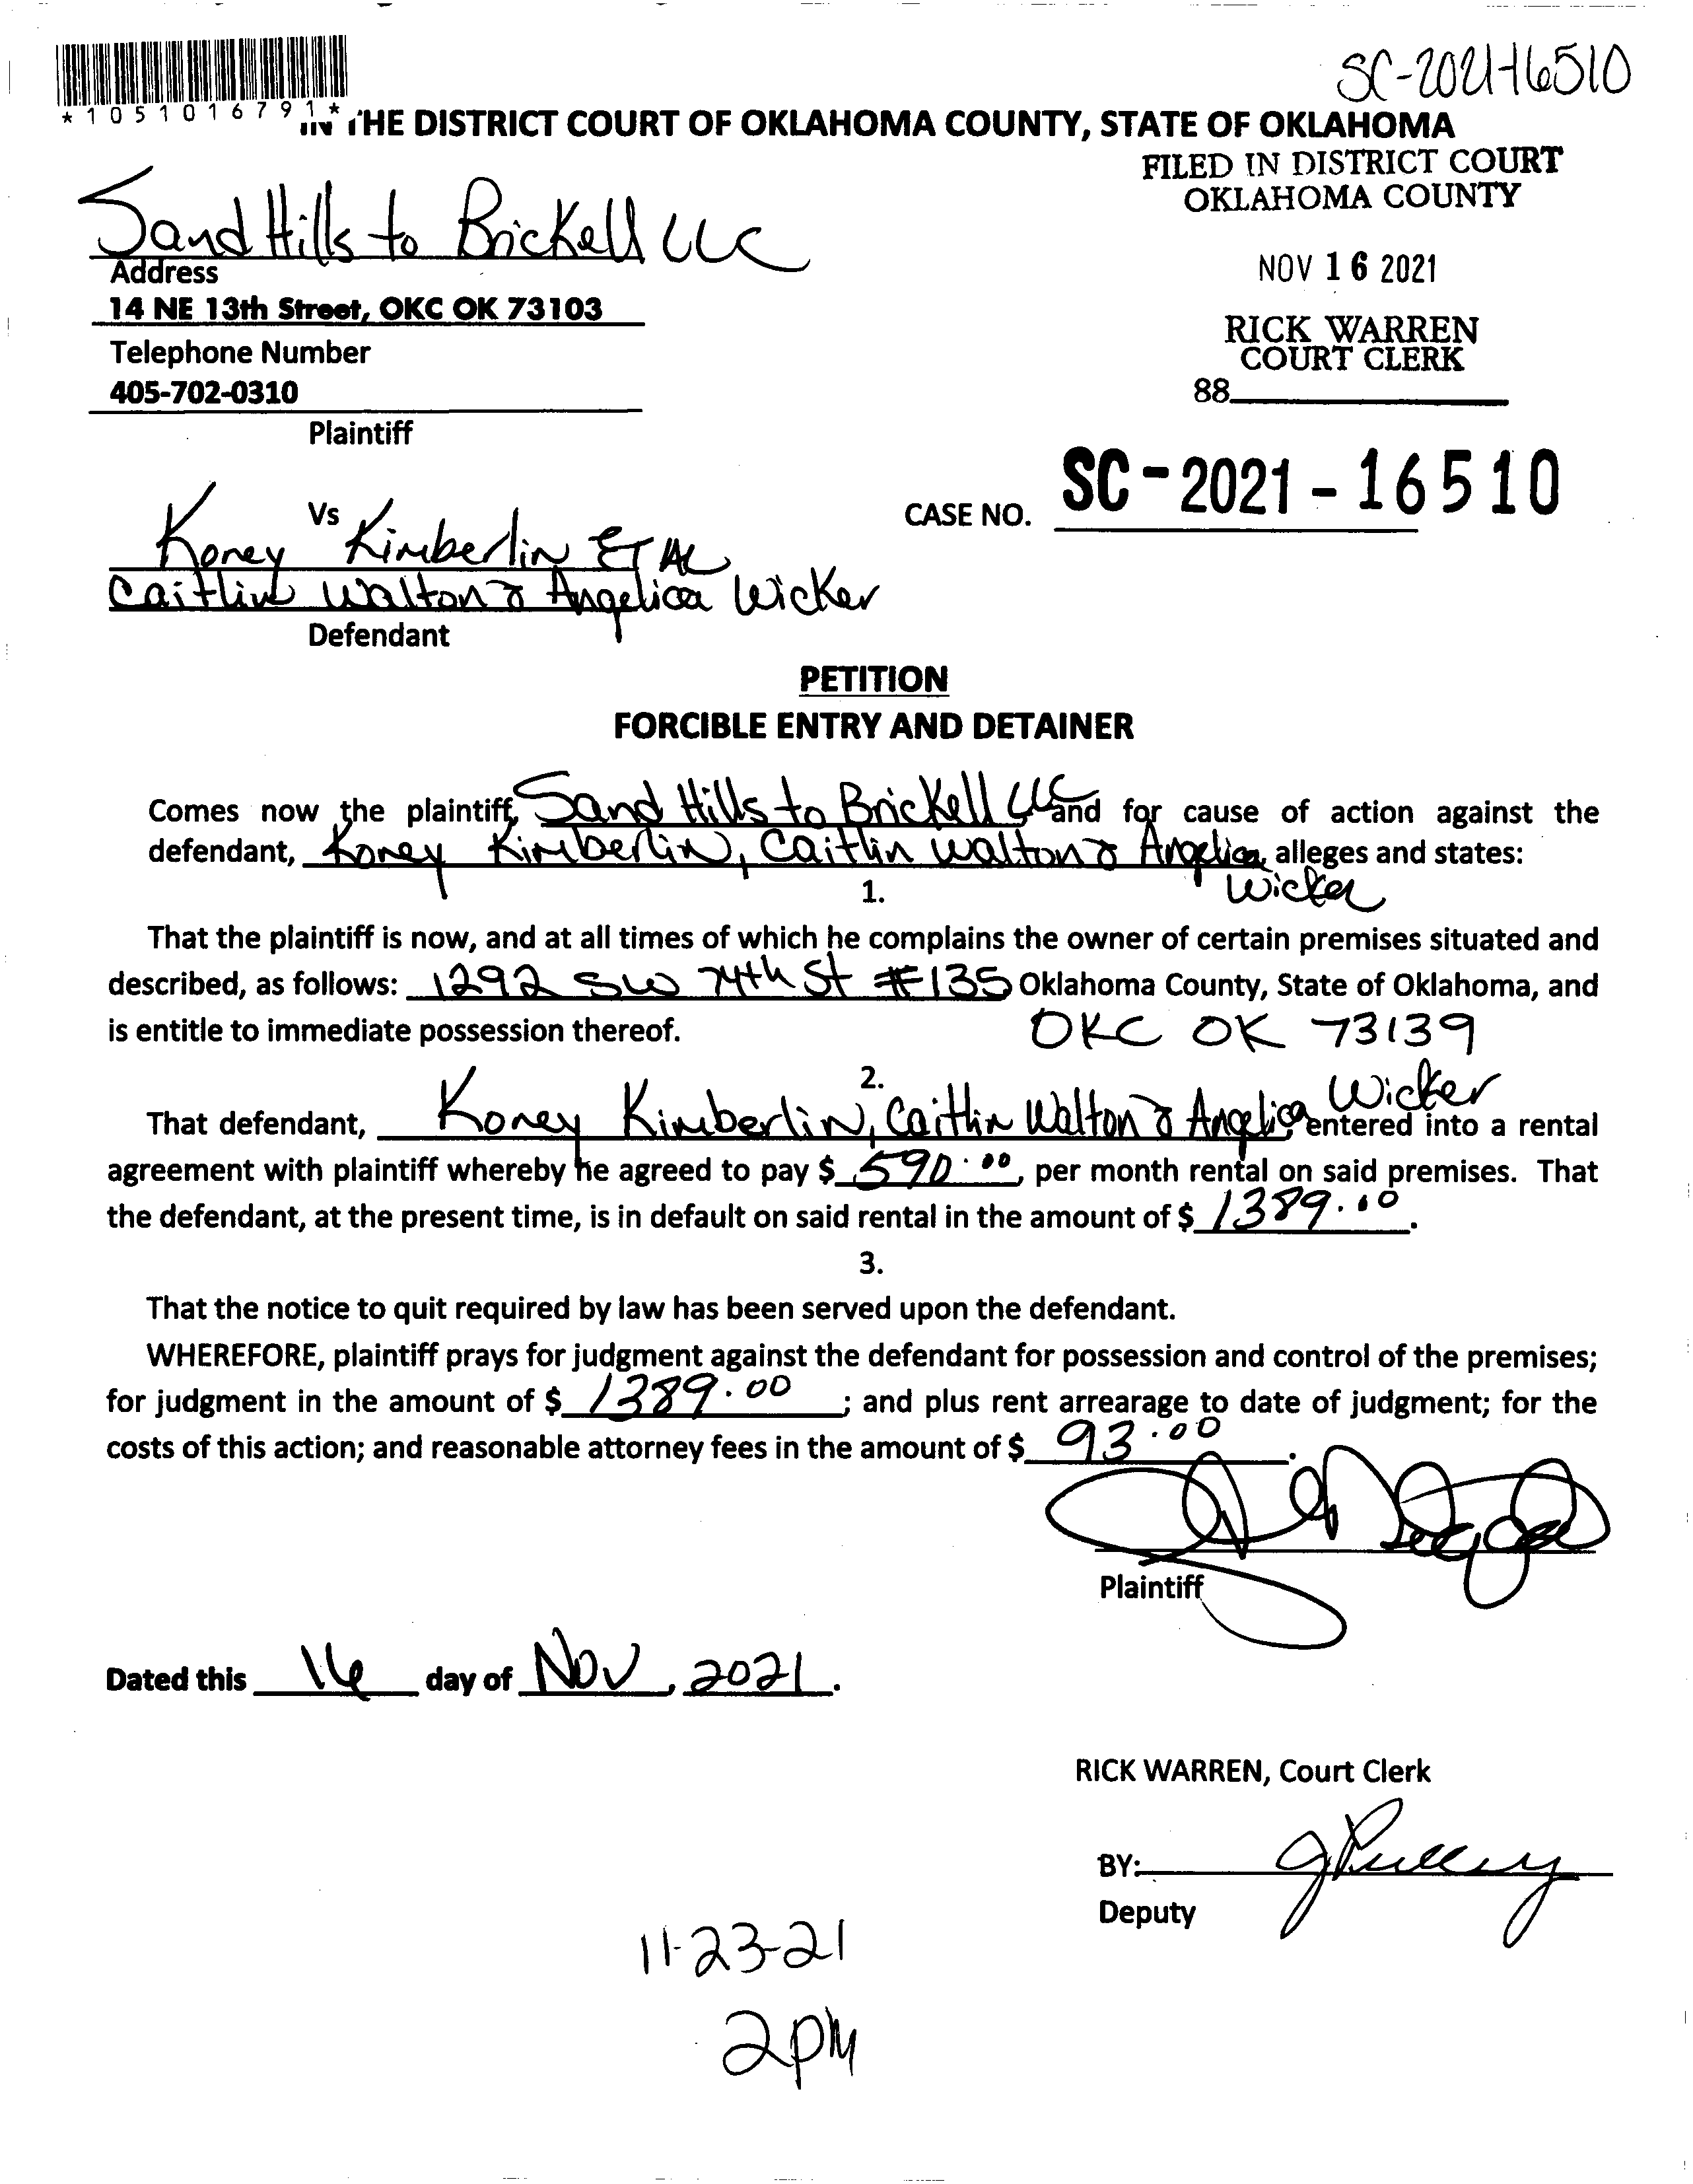 SC-2021-16510
*1051016791*
IN THE DISTRICT COURT OF OKLAHOMA COUNTY, STATE OF OKLAHOMA
FILED IN DISTRICT COURT
OKLAHOMA COUNTY
Sand Hills to Brickell LLC
Address
14 NE 13th Street, OKC OK 73103
Telephone Number
405-702-0310
Plaintiff
NOV 16 2021
RICK WARREN
COURT CLERK
88
CASE NO. SC-2021-16510
Vs
Korey Kimberlin ET AL
Caitlin Walton & Angelica Wicker
Defendant
PETITION
FORCIBLE ENTRY AND DETAINER
Comes now the plaintiff, Sand Hills to Brickell LLC and for cause of action against the
defendant, Korey Kimberlin, Caitlin Walton & Angelica Wicker, alleges and states:
1.
That the plaintiff is now, and at all times of which he complains the owner of certain premises situated and
described, as follows: 1292 SW 74th St #135 Oklahoma County, State of Oklahoma, and
is entitle to immediate possession thereof. OKC OK 73139
2.
That defendant, Korey Kimberlin, Caitlin Walton & Angelica Wicker entered into a rental
agreement with plaintiff whereby he agreed to pay $ 590.00, per month rental on said premises. That
the defendant, at the present time, is in default on said rental in the amount of $ 1389.00.
3.
That the notice to quit required by law has been served upon the defendant.
WHEREFORE, plaintiff prays for judgment against the defendant for possession and control of the premises;
for judgment in the amount of $ 1389.00; and plus rent arrearage to date of judgment; for the
costs of this action; and reasonable attorney fees in the amount of $ 93.00.
Plaintiff
Dated this 16 day of Nov, 2021.
RICK WARREN, Court Clerk
BY:
Deputy
11-23-21
2pm